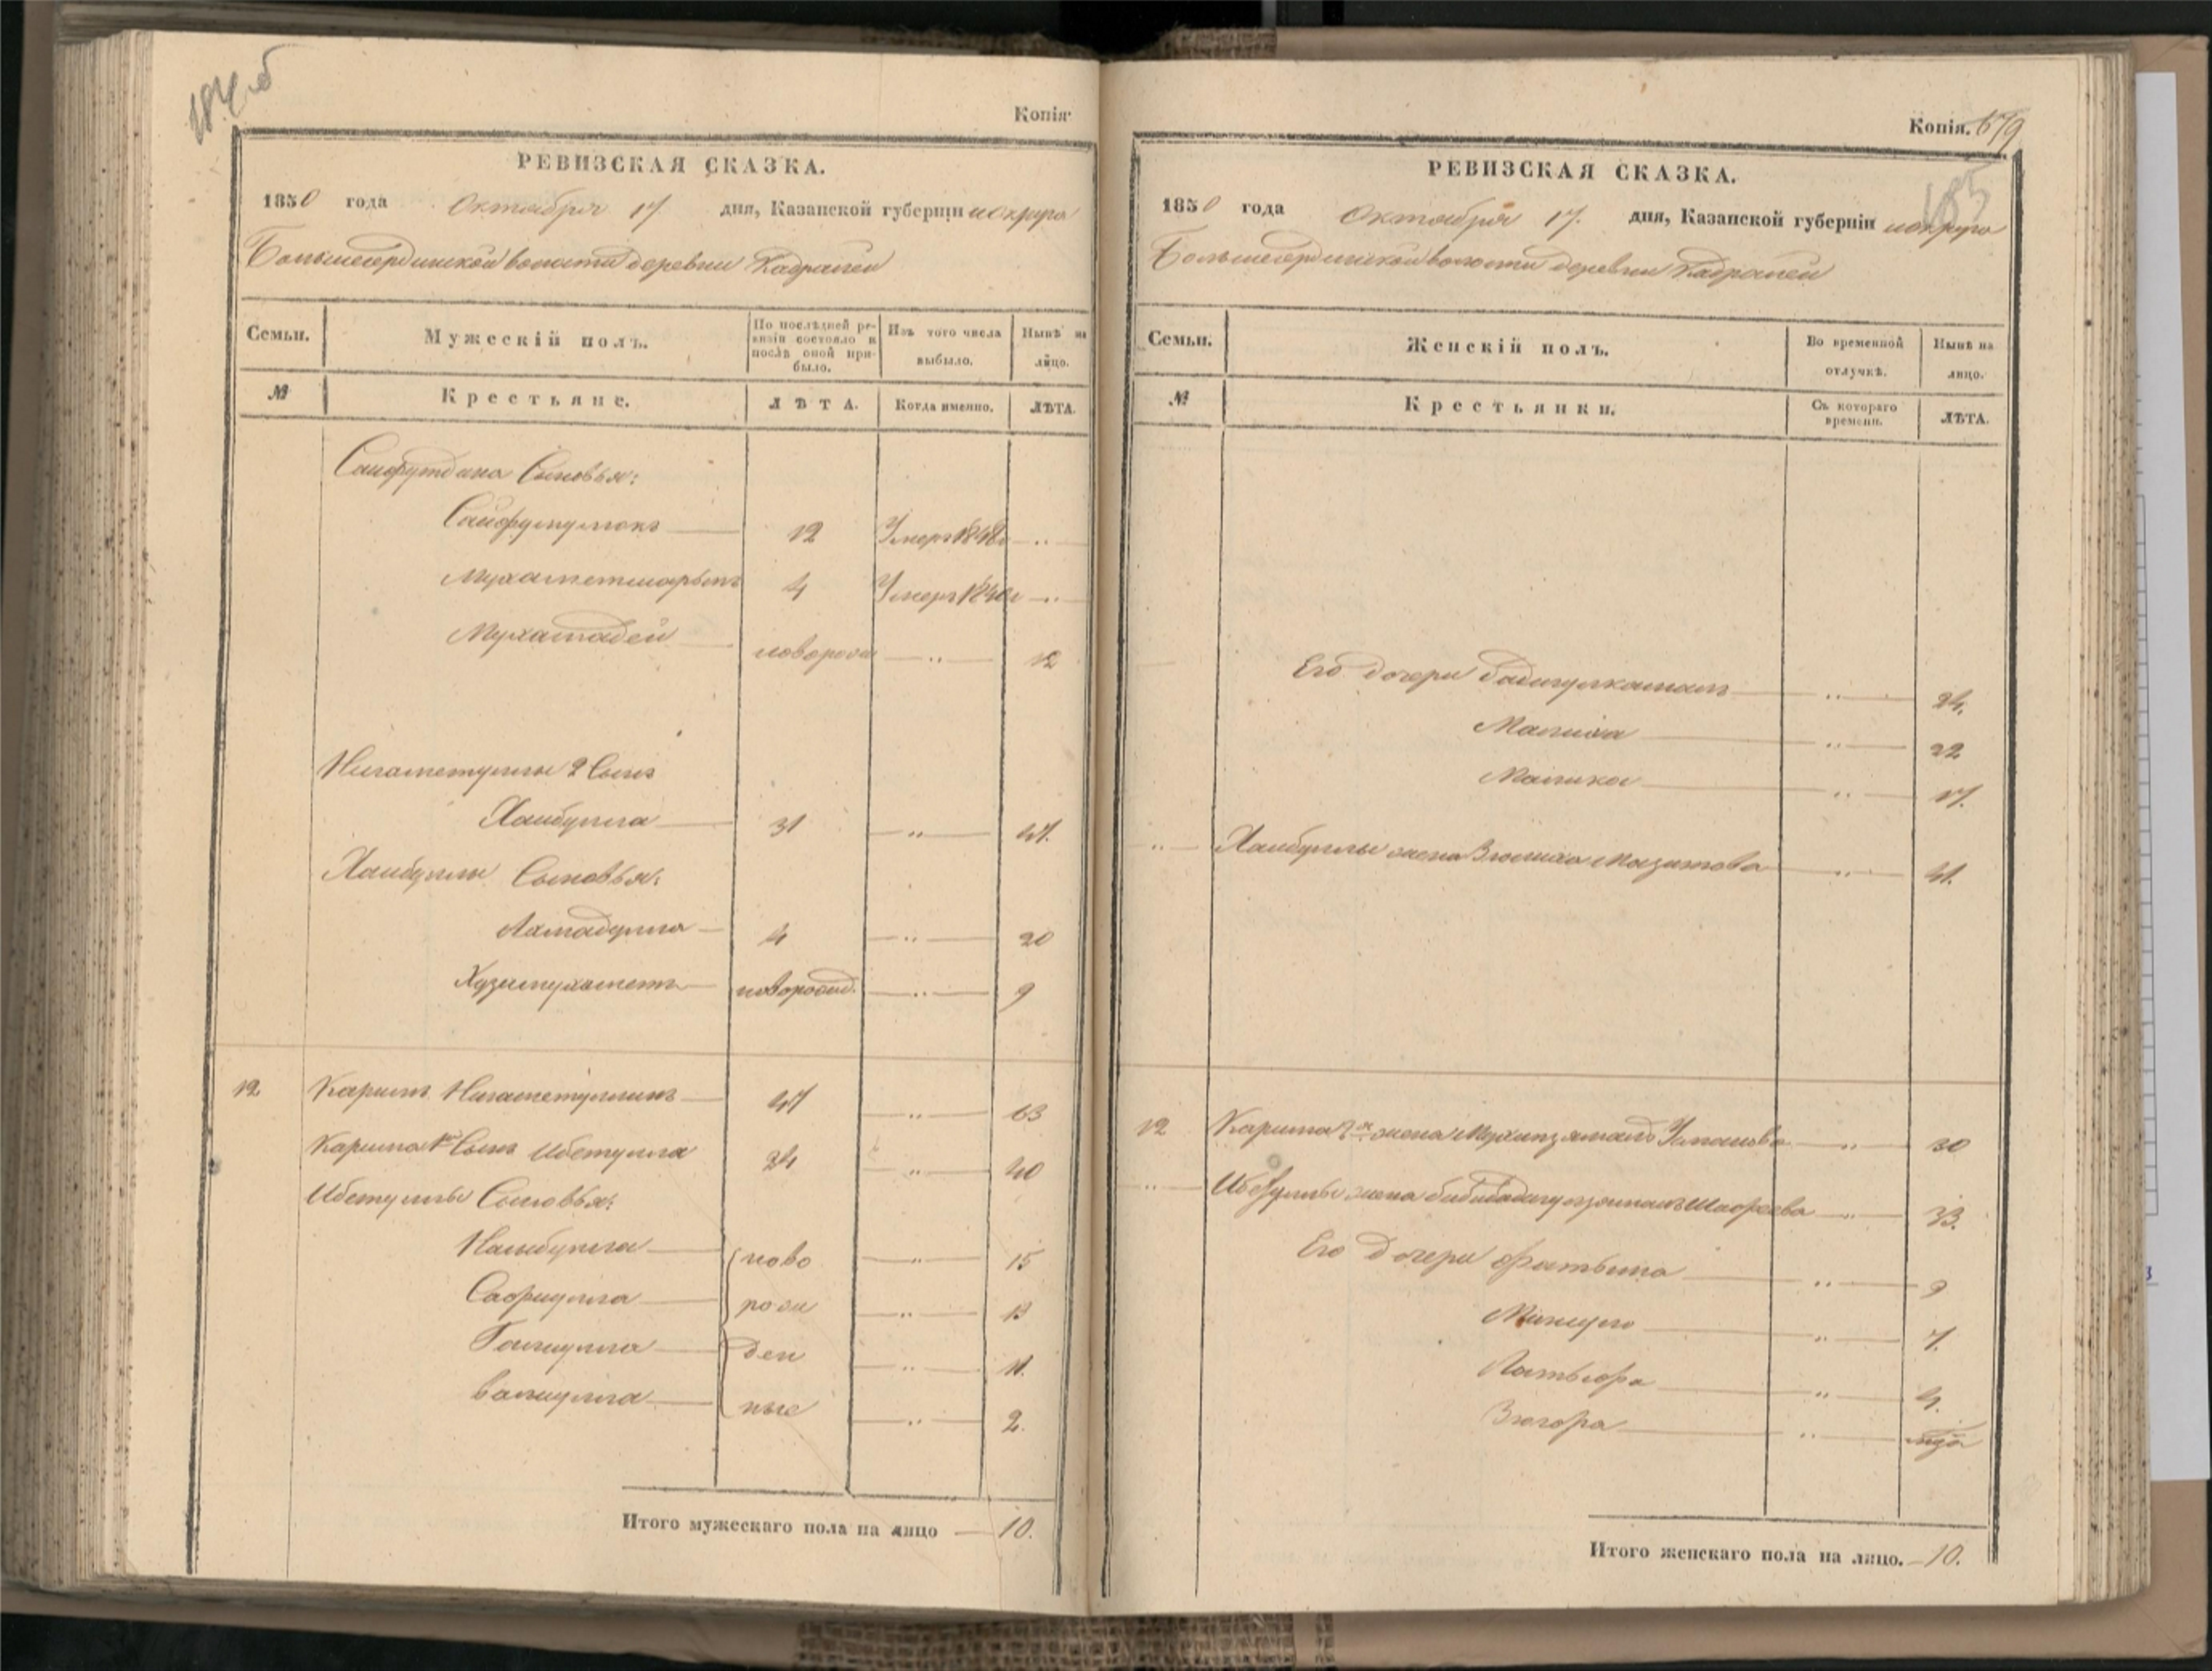 184об
Копія
РЕВИЗСКАЯ СКАЗКА.
1850 года Октября 17 дня, Казанской губерніи и округа
волости деревни Кадралей
Семьи. Мужескій полъ. По послѣдней ревизіи состояло и послѣ оной прибыло. Изъ того числа выбыло. Нынѣ на лицо.
№ Крестьяне. ЛѢТА. Когда именно. ЛѢТА.
Сайфутдина Сыновья:
Сайфулмулюкъ 12 Умеръ 1848г „
4 Умеръ 1840г „
Мухамадей новорожд „ 12
Нигаметуллы 2 Сынъ
Хайбулла 31 „ 47.
Хайбуллы Сыновья:
Ахмадулла 4 „ 20
Хузимухаметъ новорожд. „ 9
12 Каримъ Нигаметуллинъ 47 „ 63
Карима 1й Сынъ Ибетулла 24 „ 40
Ибетуллы Сыновья:
Наибулла ново „ 15
Сафиулла рож „ 13
Галиулла ден „ 11.
Валиулла ные „ 2.
Итого мужескаго пола на лицо 10.
Копія. 679
185
РЕВИЗСКАЯ СКАЗКА.
1850 года Октября 17. дня, Казанской губерніи и округа
волости деревни Кадралей
Семьи. Женскій полъ. Во временной отлучкѣ. Нынѣ на лицо.
№ Крестьянки. Съ котораго времени. ЛѢТА.
Его дочери Бадигулкамалъ „ 24.
Малиха „ 22
Малика „ 17.
„ Хайбуллы жена Зюлиха Мазитова „ 41.
12 Карима 2я жена „ 30
„ Ибетуллы жена „ 33.
Его Дочери Фатьима „ 9
„ 7.
Латыфа „ 4.
Зюгора „
Итого женскаго пола на лицо. 10.